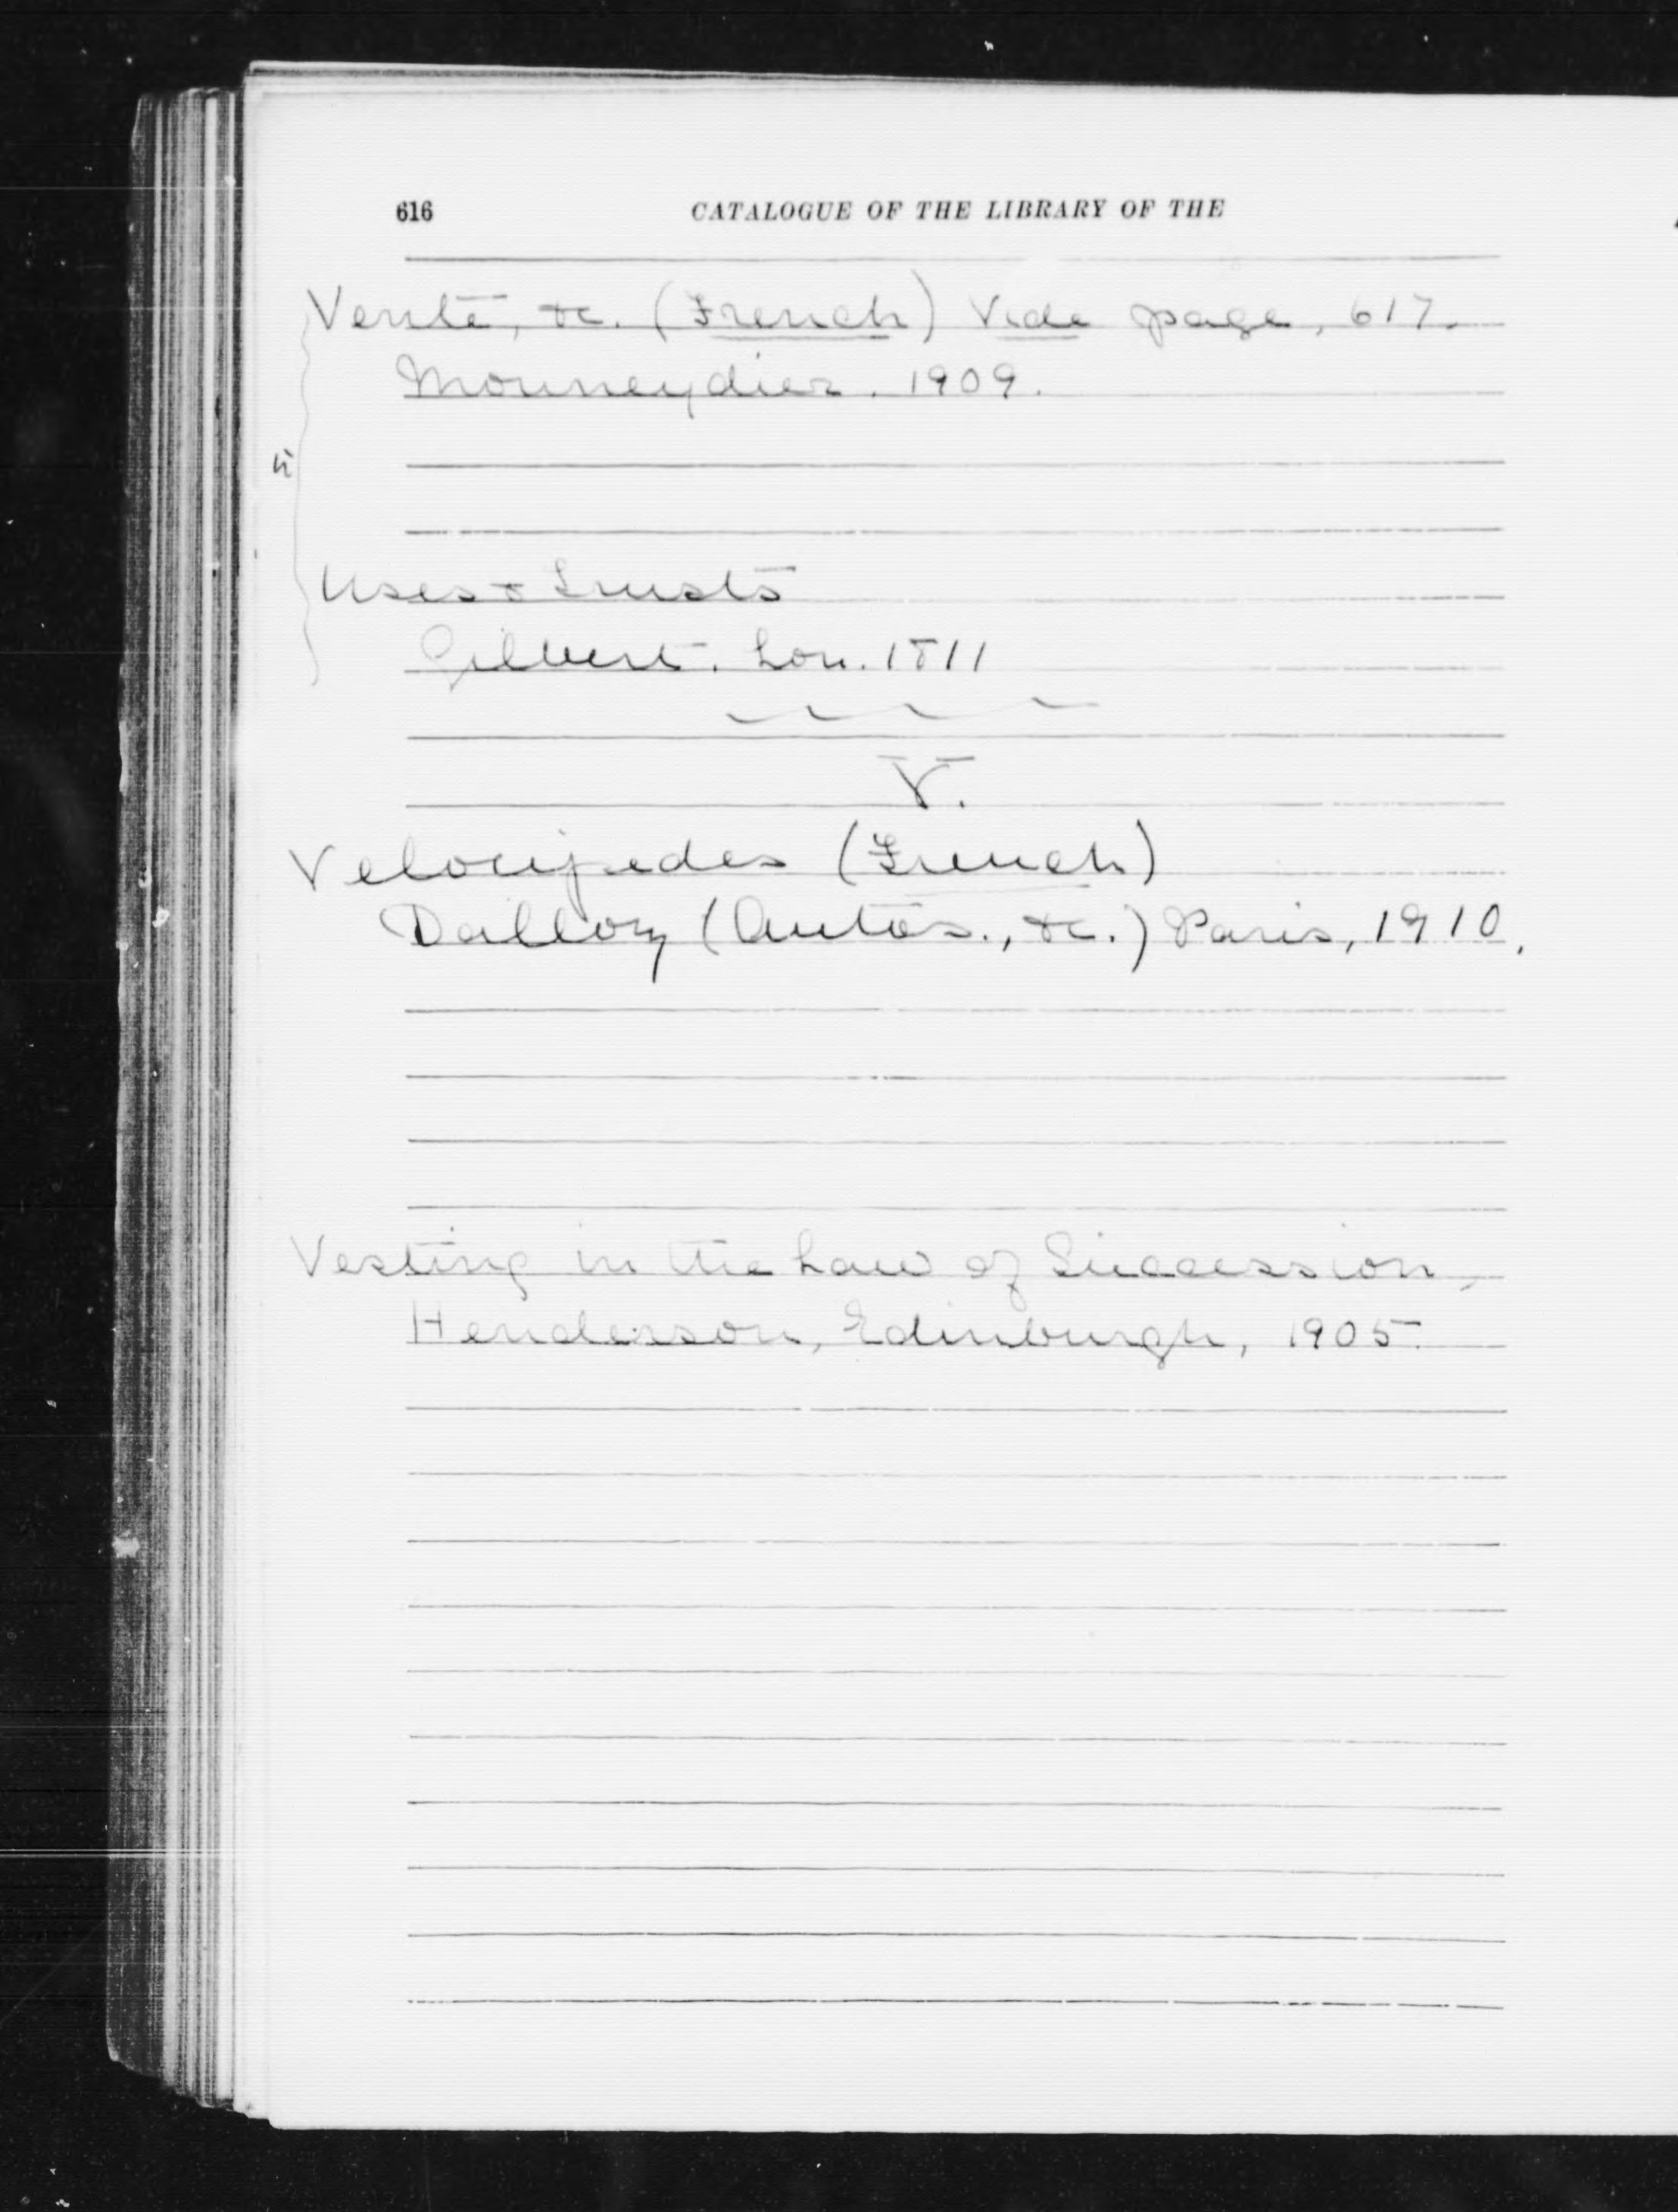 616 CATALOGUE OF THE LIBRARY OF THE
Vente, &c. (French) Vide page, 617.
Mounneydier. 1909.
Uses & Trusts
Gilbert. Lon. 1811
V.
Velocipedes (French)
Dalloz (Autos., &c.) Paris, 1910.
Vesting in the Law of Succession,
Henderson, Edinburgh, 1905.